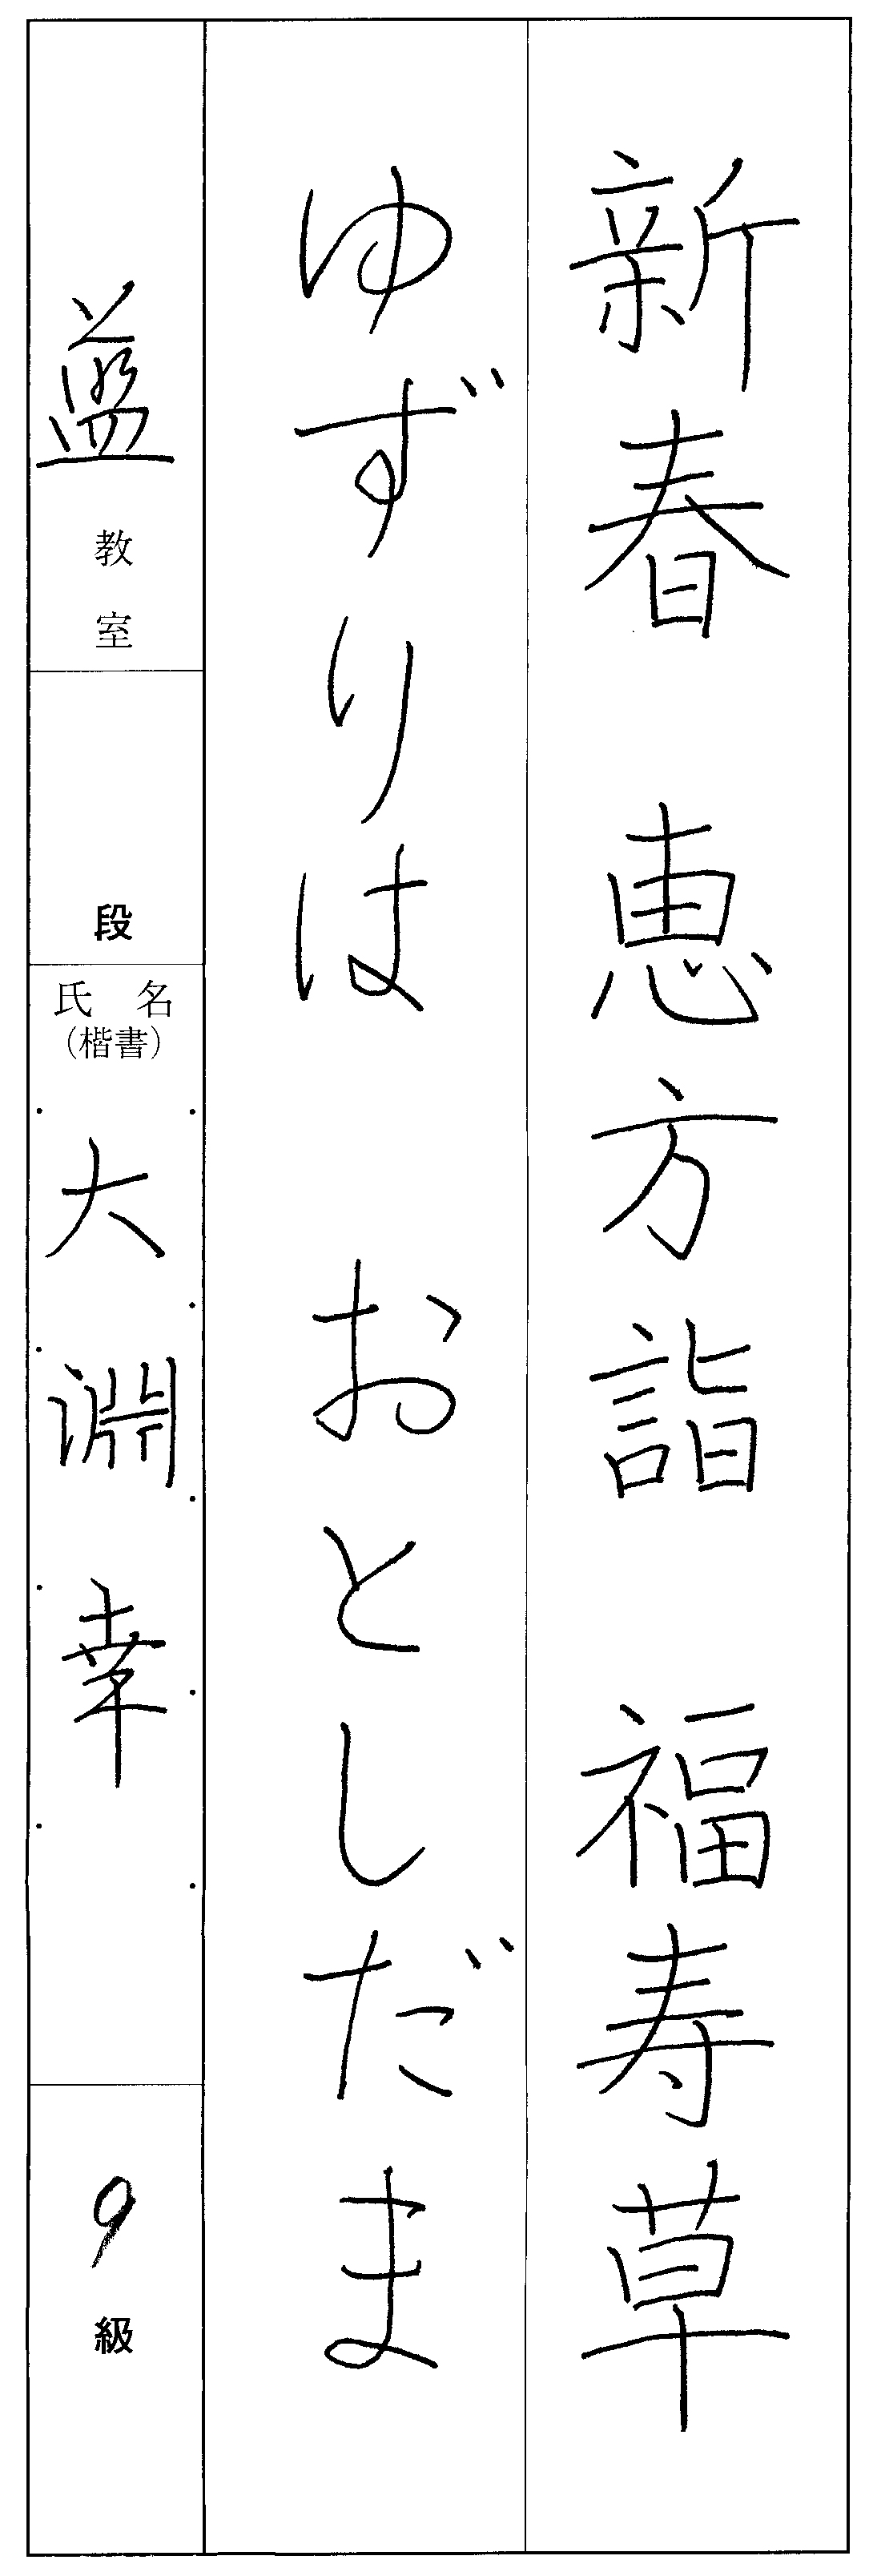 新春 恵方詣 福寿草
ゆずりは おとしだま
教室
段
氏名
(楷書)
大淵幸
9級